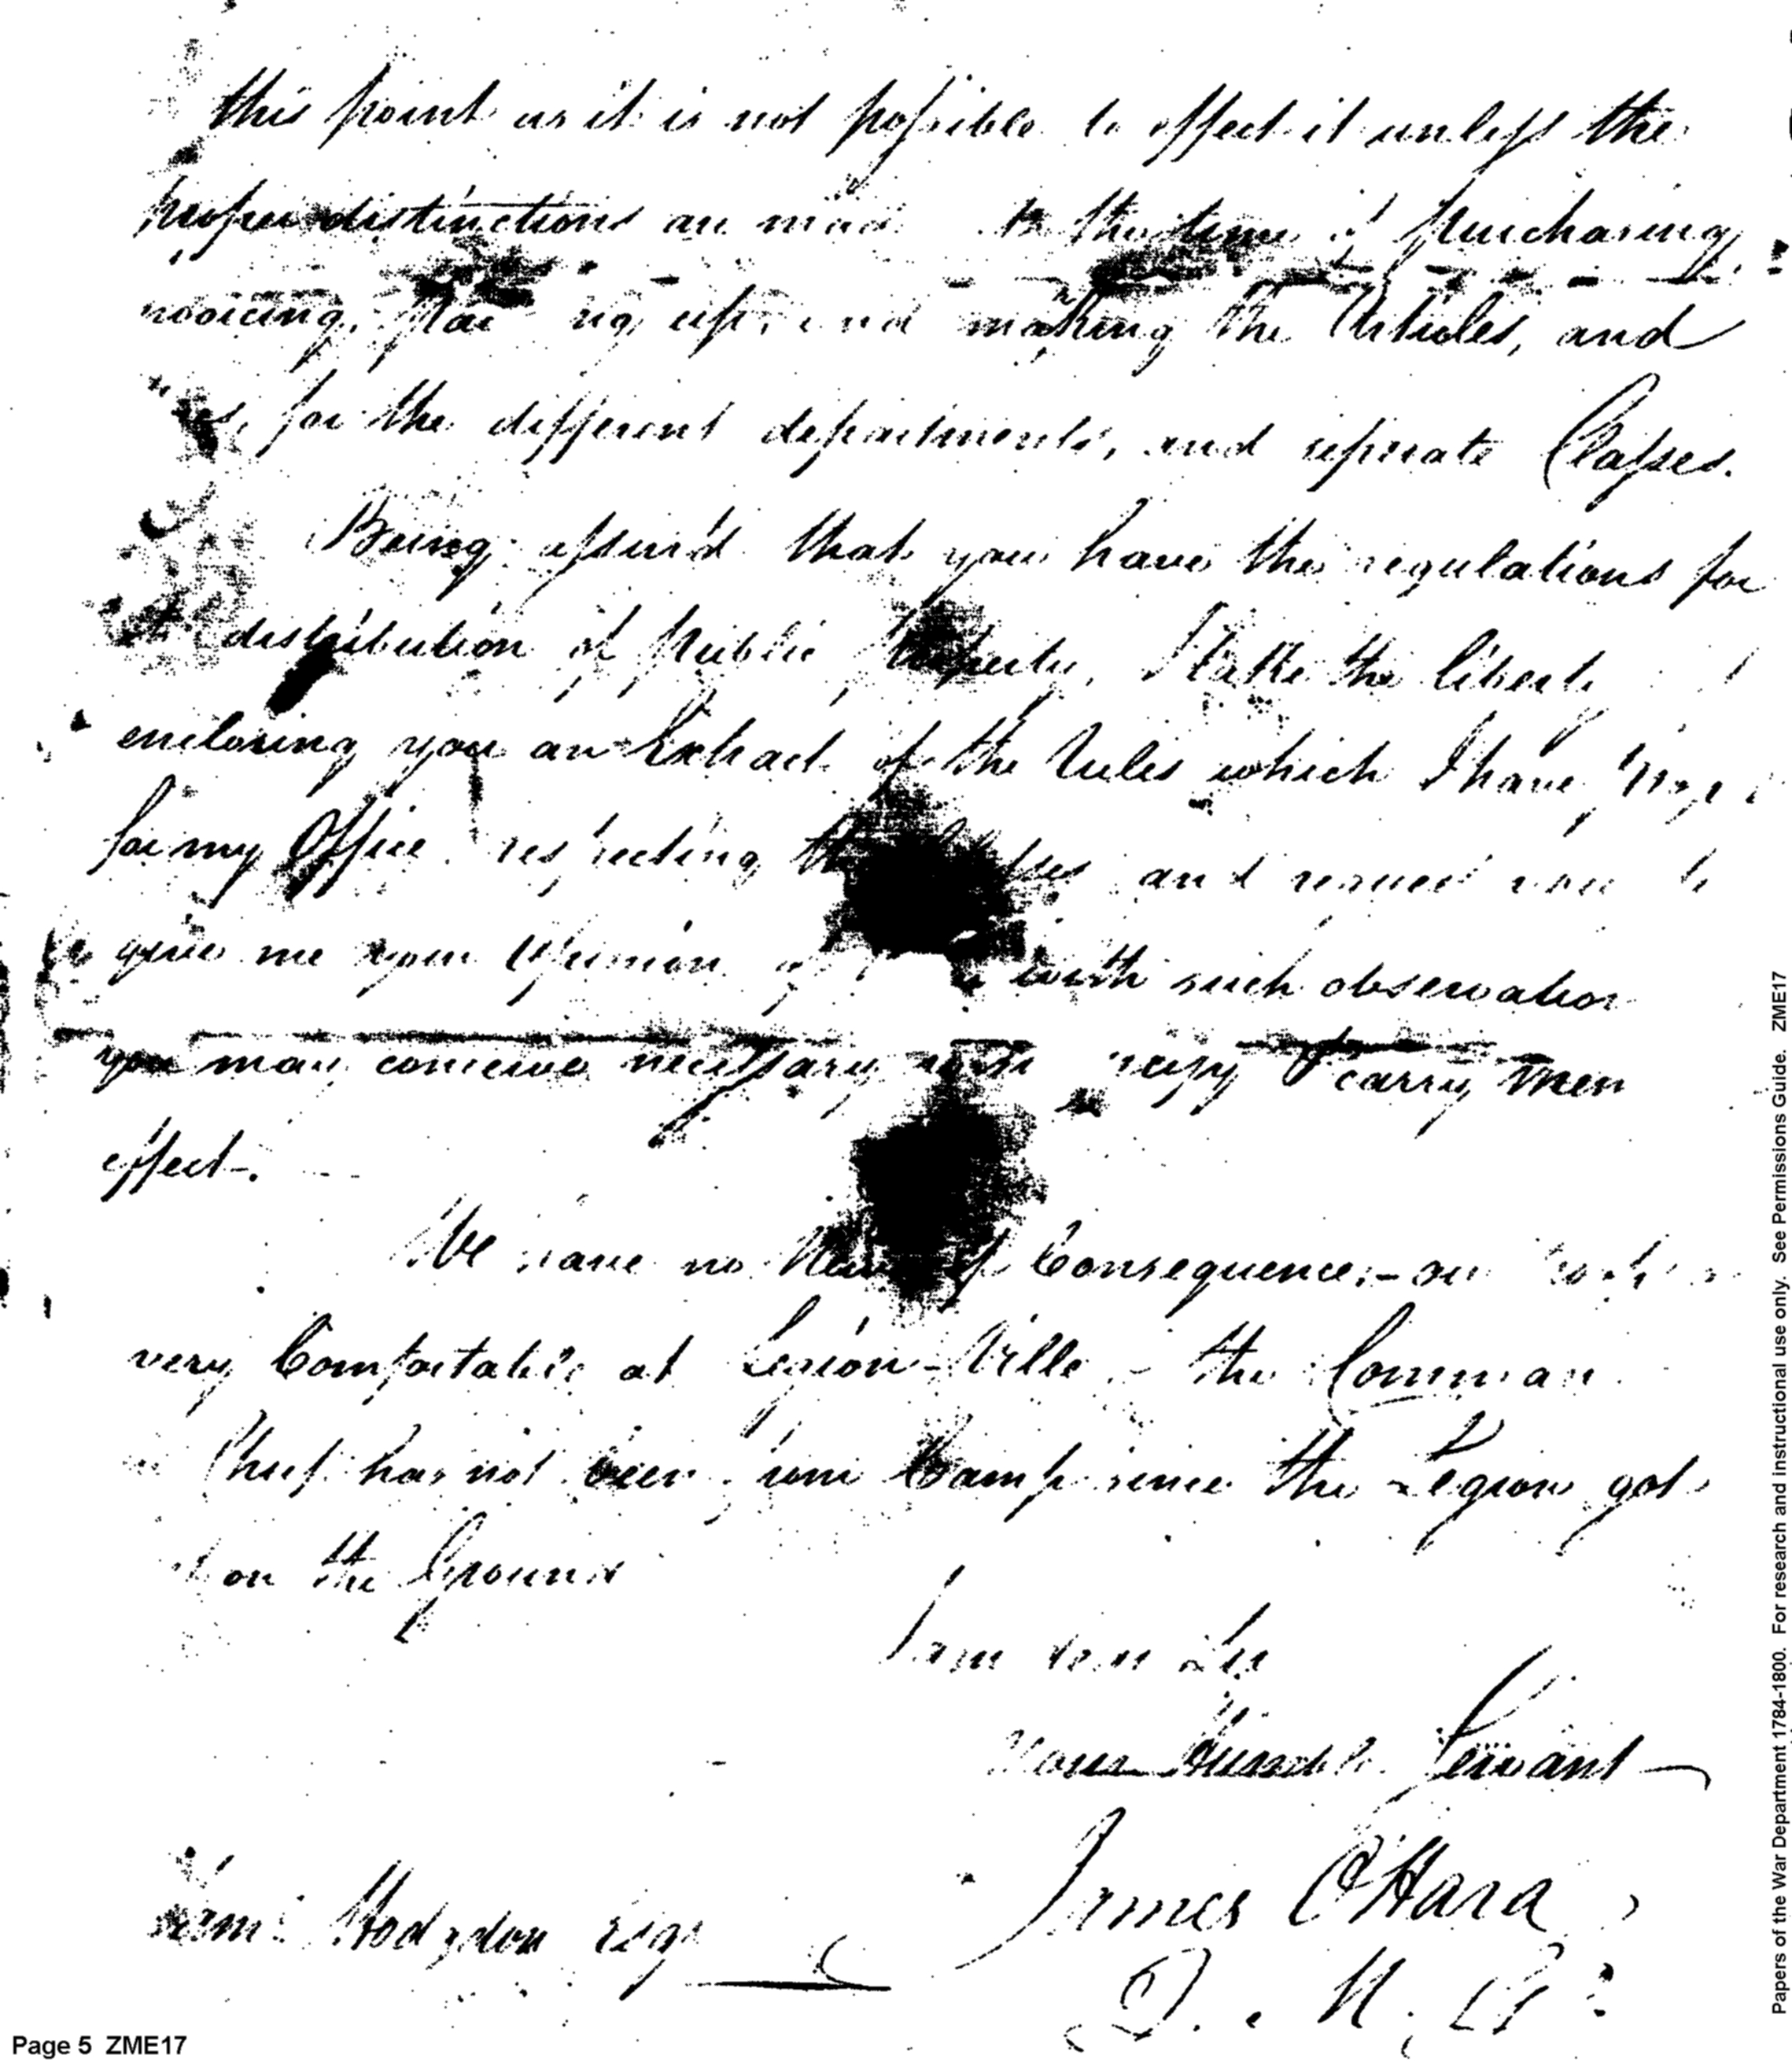 this point as it is not possible to effect it unless the
proper distinctions are made the time of purchasing,
up, and making the Articles, and
for the different departments, and seperate Classes.
Being assur'd that you have the regulations for
distribution of Public Property, I take the liberty
enclosing you an Extract of the Rules which I have
for my Office respecting the and request you to
give me your Opinion with such observation
you may conceive necessary carry them
effect.
We have no News of Consequence, - our
very Comfortable at Legion-Ville - the Comman
Chief has not been from Camp since the Legion got
on the Ground
I am
Your Humble Servant
James O'Hara
Q. M. G
Hodgdon Esqr
Page 5 ZME17
Papers of the War Department 1784-1800. For research and instructional use only. See Permissions Guide. ZME17